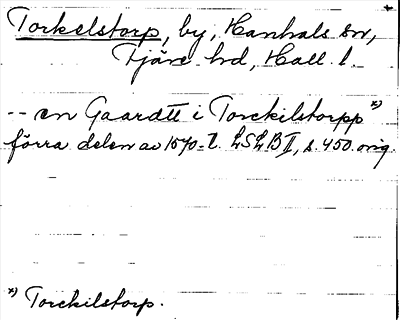 Torkelstorp, by, Hanhals sn,
Fjäre hd, Hall. l.
-- en Gaardtt i Torckilstorpp *)
förra delen av 1570-t. LSLB II, s. 450. orig.
*) Torckilstorp.